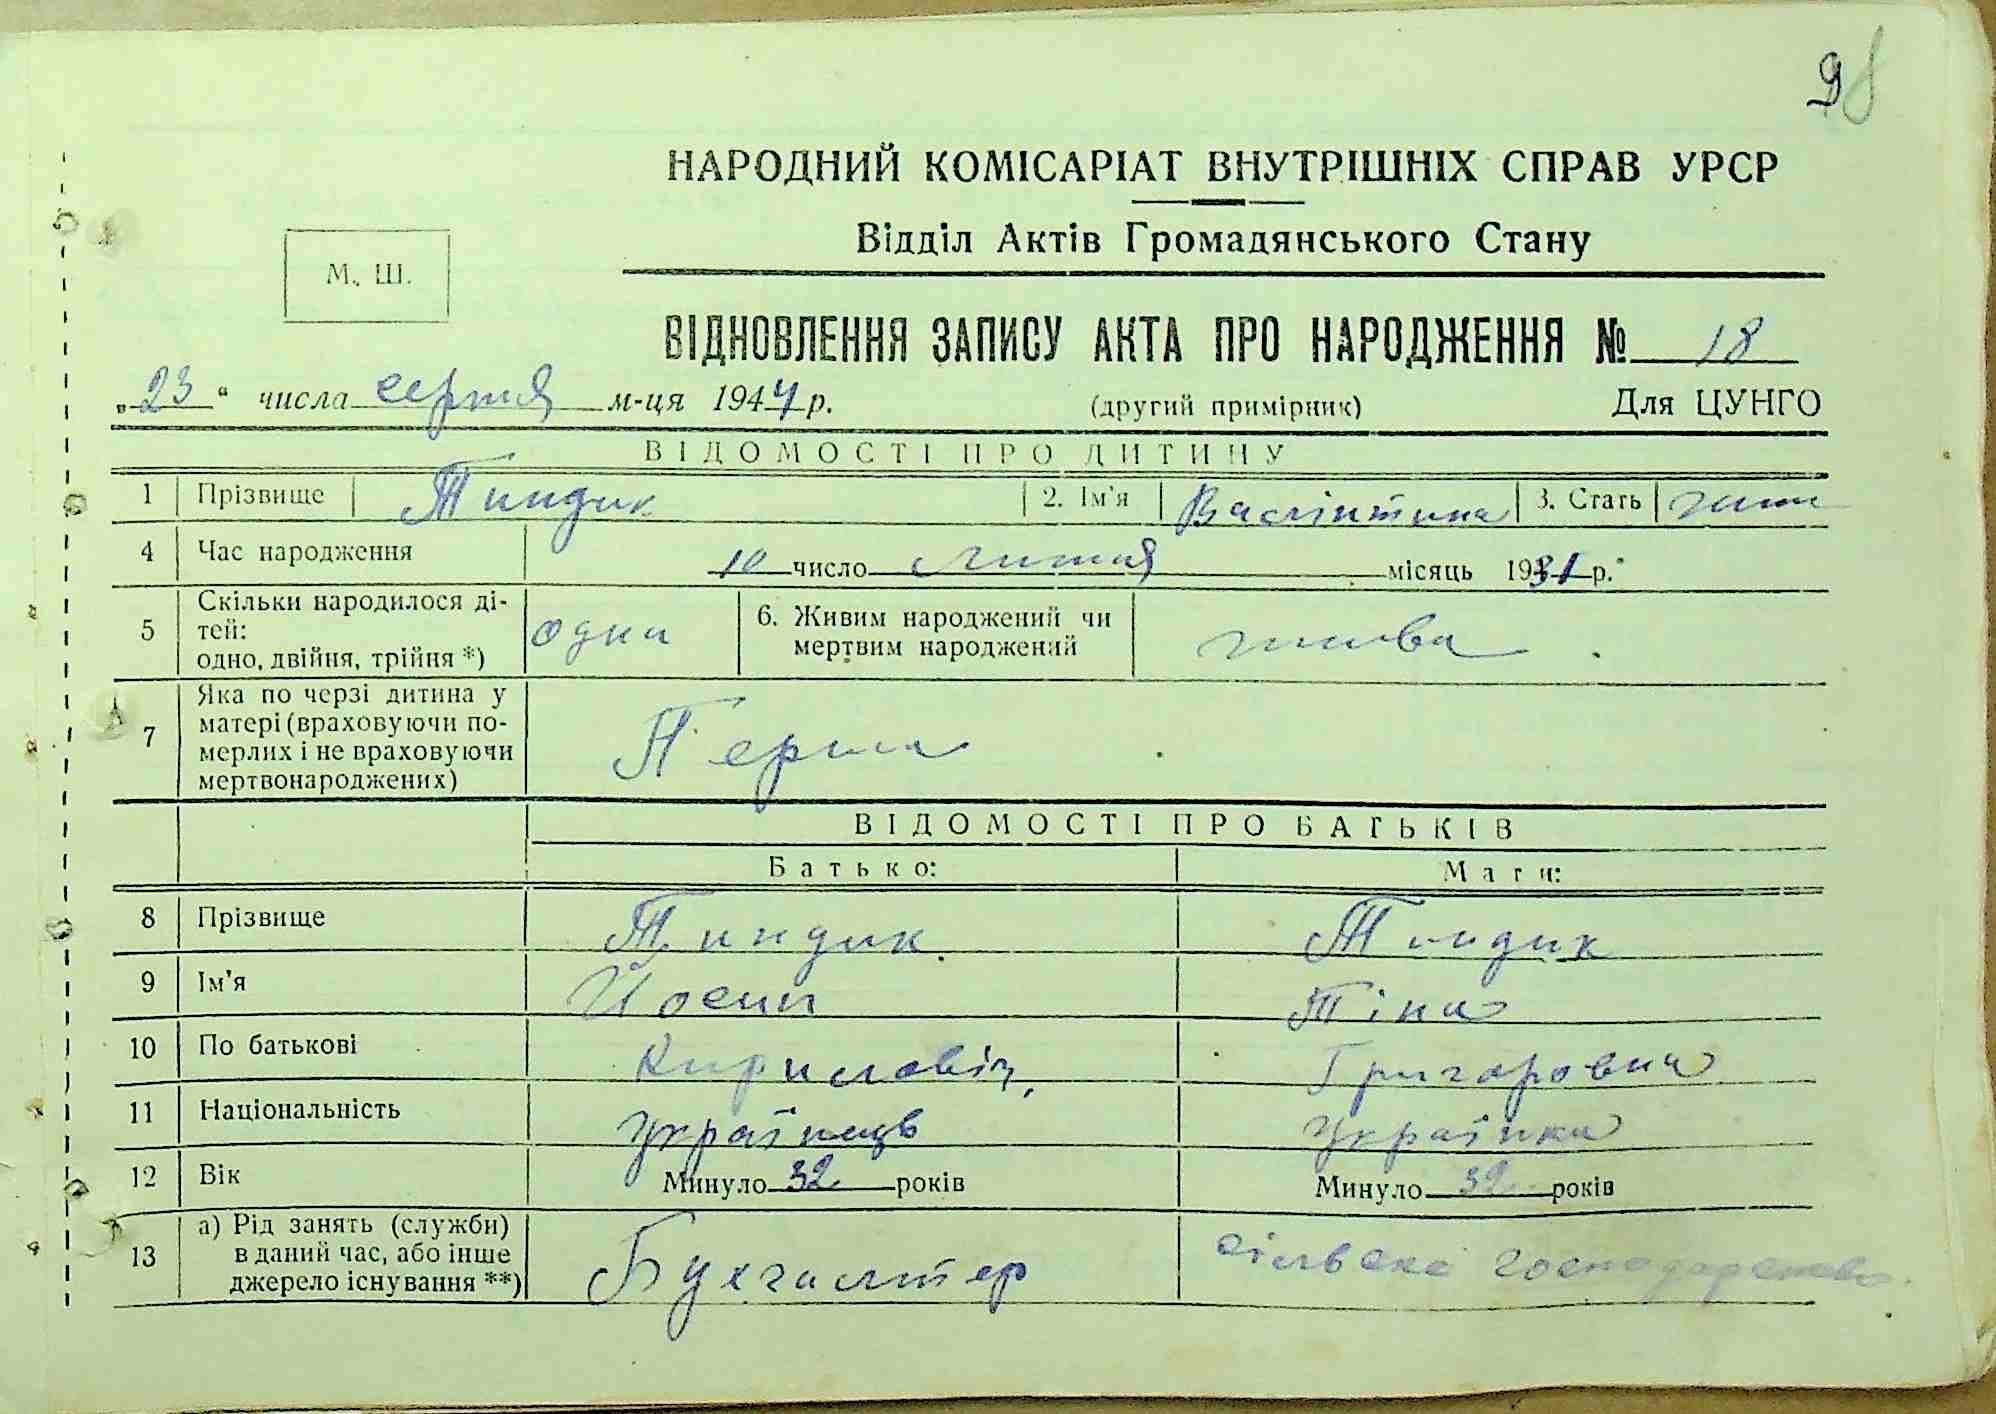 98
НАРОДНИЙ КОМІСАРІАТ ВНУТРІШНІХ СПРАВ УРСР
Відділ Актів Громадянського Стану
М. Ш.
ВІДНОВЛЕННЯ ЗАПИСУ АКТА ПРО НАРОДЖЕННЯ № 18
„23“ числа серпня м-ця 1944 р. (другий примірник) Для ЦУНГО
ВІДОМОСТІ ПРО ДИТИНУ
1 Прізвище Тиндик 2. Ім'я Валінтина 3. Стать жін
4 Час народження 10 число Лютня місяць 1931 р.
5 Скільки народилося ді-
тей:
одно, двійня, трійня *) одна 6. Живим народжений чи
мертвим народжений жива
7 Яка по черзі дитина у
матері (враховуючи по-
мерлих і не враховуючи
мертвонароджених) Перша
ВІДОМОСТІ ПРО БАТЬКІВ
Батько: Мати:
8 Прізвище Тиндик Тиндик
9 Ім'я Йосип Тіна
10 По батькові Кирилавіч Григоровна
11 Національність Українець Українка
12 Вік Минуло 32 років Минуло 32 років
13 а) Рід занять (служби)
в даний час, або інше
джерело існування **) Бухгалтер сільське господарство